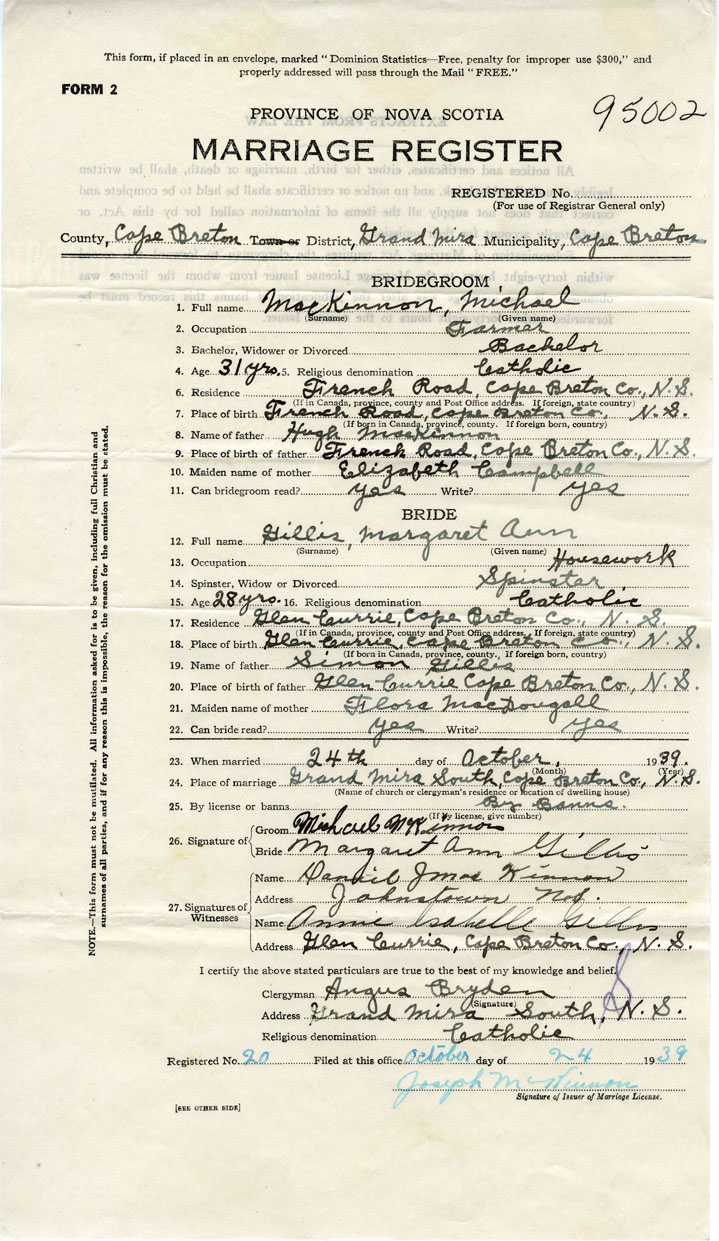 This form, if placed in an envelope, marked "Dominion Statistics—Free, penalty for improper use $300," and
properly addressed will pass through the Mail "FREE."
FORM 2
95002
PROVINCE OF NOVA SCOTIA
MARRIAGE REGISTER
REGISTERED No.
(For use of Registrar General only)
County, Cape Breton Town or District, Grand Mira Municipality, Cape Breton
BRIDEGROOM
1. Full name MacKinnon, Michael
(Surname) (Given name)
2. Occupation Farmer
3. Bachelor, Widower or Divorced Bachelor
4. Age 31 yrs. 5. Religious denomination Catholic
6. Residence French Road, Cape Breton Co., N. S.
(If in Canada, province, county and Post Office address. If foreign, state country)
7. Place of birth French Road, Cape Breton Co., N. S.
(If born in Canada, province, county. If foreign born, country)
8. Name of father Hugh MacKinnon
9. Place of birth of father French Road, Cape Breton Co., N. S.
10. Maiden name of mother Elizabeth Campbell
11. Can bridegroom read? yes Write? yes
BRIDE
12. Full name Gillis, Margaret Ann
(Surname) (Given name)
13. Occupation Housework
14. Spinster, Widow or Divorced Spinster
15. Age 28 yrs. 16. Religious denomination Catholic
17. Residence Glen Currie, Cape Breton Co., N. S.
(If in Canada, province, county and Post Office address. If foreign, state country)
18. Place of birth Glen Currie, Cape Breton Co., N. S.
(If born in Canada, province, county, If foreign born, country)
19. Name of father Simon Gillis
20. Place of birth of father Glen Currie Cape Breton Co., N. S.
21. Maiden name of mother Flora MacDougall
22. Can bride read? yes Write? yes
23. When married 24th day of October, 1939.
(Month) (Year)
24. Place of marriage Grand Mira South, Cape Breton Co., N. S.
(Name of church or clergyman's residence or location of dwelling house)
25. By license or banns By Banns.
(If by license, give number)
26. Signature of
Groom Michael McKinnon
Bride Margaret Ann Gillis
27. Signatures of Witnesses
Name Daniel J Mac Kinnon
Address Johnstown N.S.
Name Annie Isabelle Gillis
Address Glen Currie, Cape Breton Co., N. S.
I certify the above stated particulars are true to the best of my knowledge and belief.
Clergyman Angus Bryden
(Signature)
Address Grand Mira South, N. S.
Religious denomination Catholic
Registered No. 20 Filed at this office October day of 24 1939
Joseph McKinnon
Signature of Issuer of Marriage License.
[SEE OTHER SIDE]
NOTE.—This form must not be mutilated. All information asked for is to be given, including full Christian and
surnames of all parties, and if for any reason this is impossible, the reason for the omission must be stated.